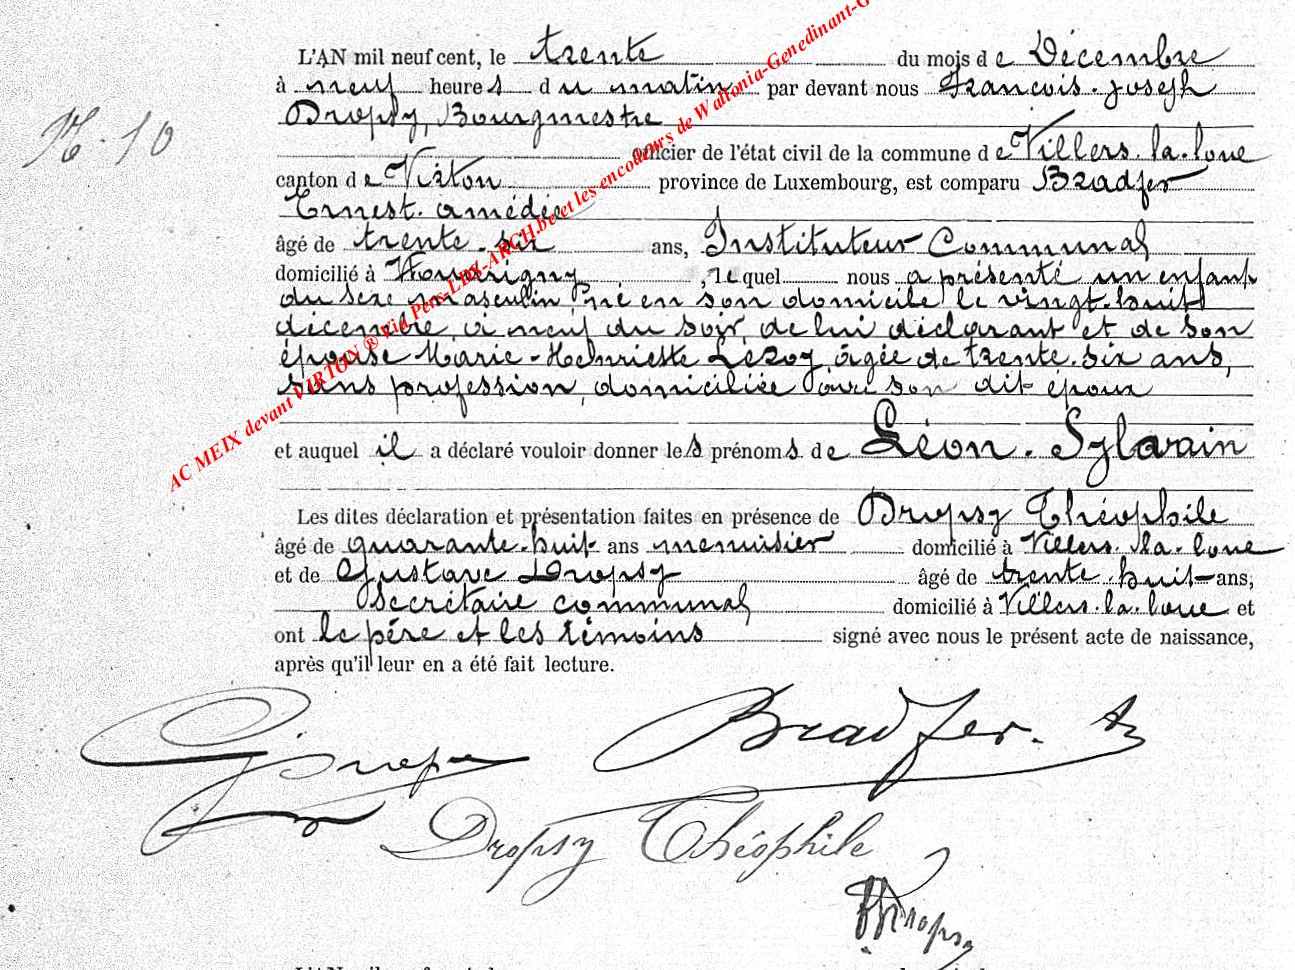 L'AN mil neuf cent, le trente du mois de Décembre
à neuf heures du matin par devant nous François-Joseph
N° 10
Dropsy, Bourgmestre
officier de l'état civil de la commune de Villers-la-loue
canton de Virton province de Luxembourg, est comparu Bradfer
Ernest-amédée
âgé de trente-six ans, Instituteur Communal
domicilié à Houdrigny, lequel nous a présenté un enfant
du sexe masculin, né en son domicile le vingt-huit
décembre, à neuf du soir, de lui déclarant et de son
épouse Marie-Henriette Lézoy, âgée de trente-six ans,
sans profession, domiciliée avec son dit époux
et auquel il a déclaré vouloir donner les prénoms de Léon-Sylvain
Les dites déclaration et présentation faites en présence de Dropsy Théophile
âgé de quarante-huit ans menuisier domicilié à Villers-la-loue
et de Gustave Dropsy âgé de trente-huit ans,
Secrétaire communal domicilié à Villers-la-loue et
ont le père et les témoins signé avec nous le présent acte de naissance,
après qu'il leur en a été fait lecture.
Bradfer. E
Dropsy Théophile
Dropsy
AC MEIX devant VIRTON ® Via Pens-LUX-ARCH.be et les encodeurs de Wallonia-Genedinant-G